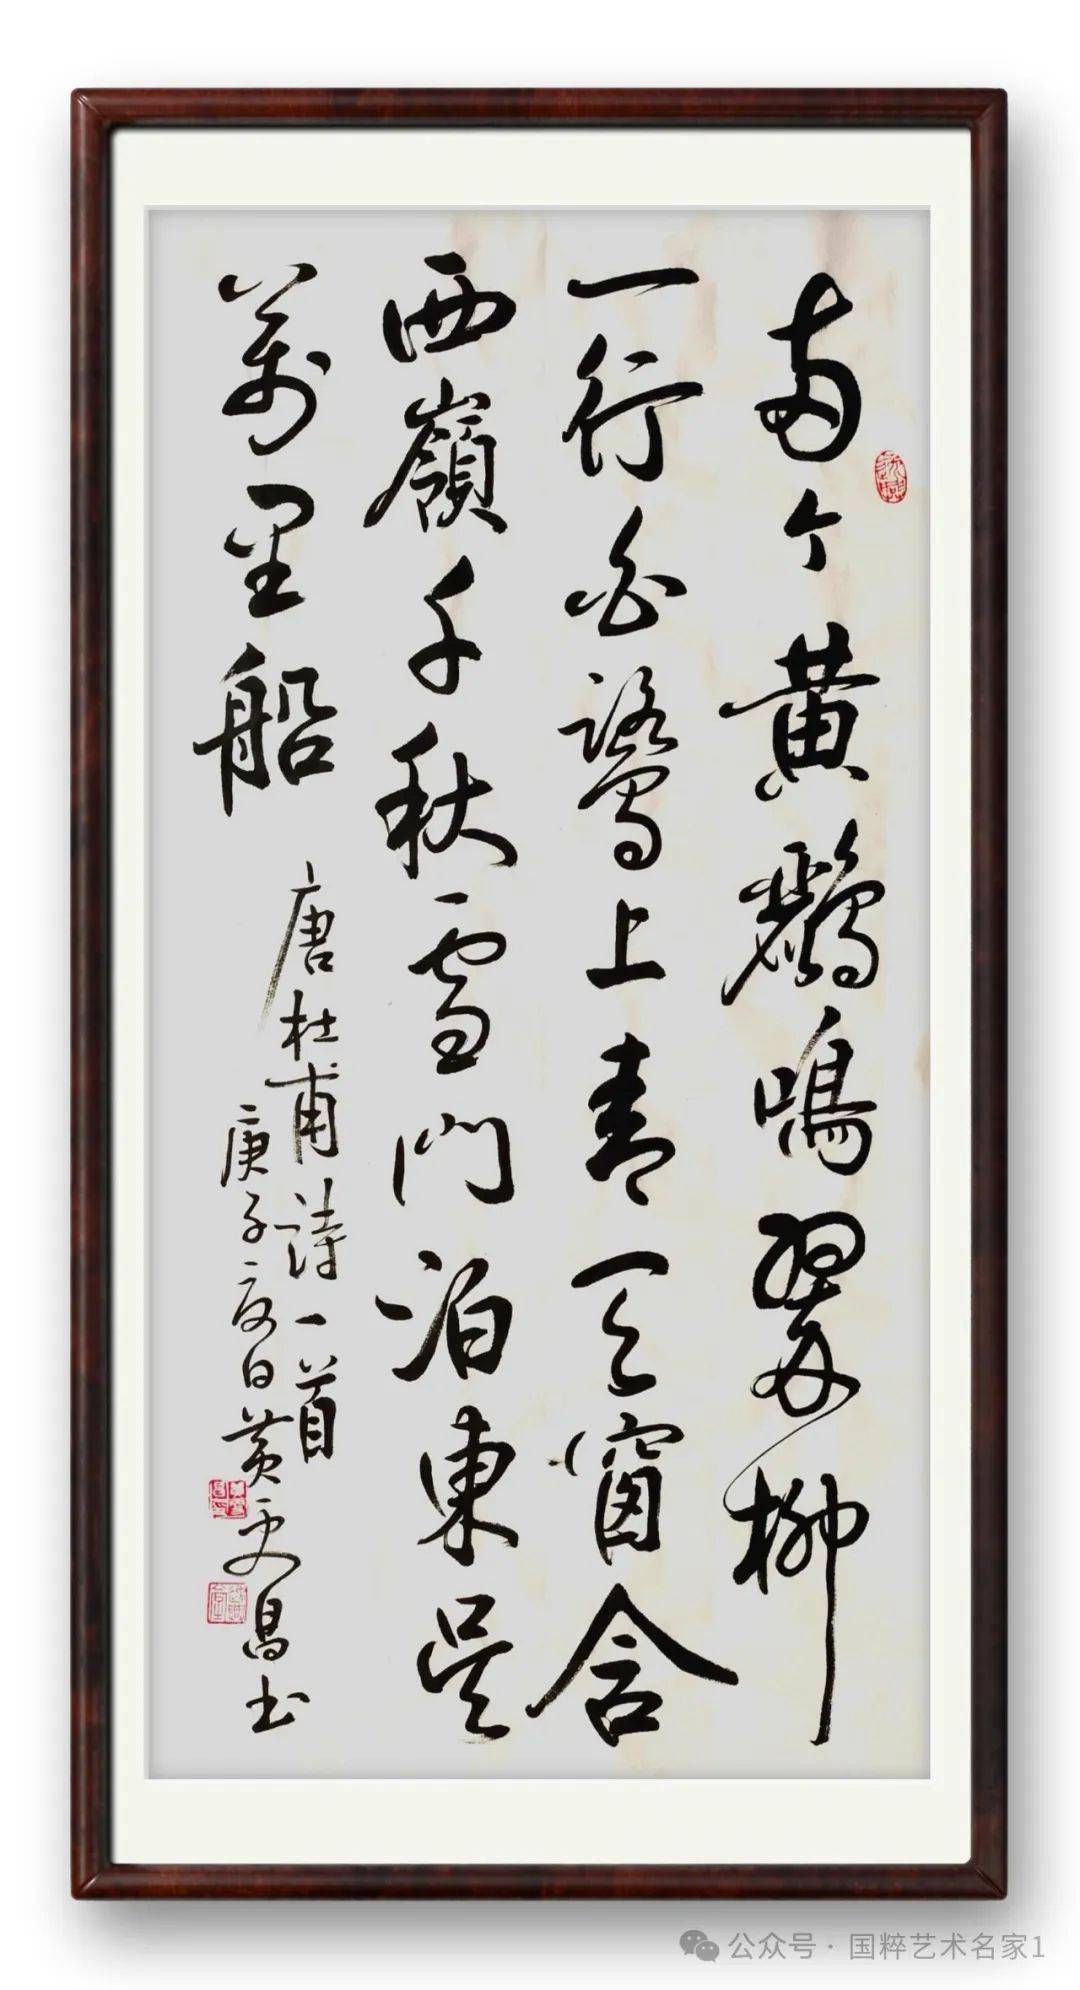 兩个黄鸝鳴翠柳
一行白鷺上青天窗含
西嶺千秋雪門泊東吳
萬里船
唐杜甫詩一首
庚子夏日黄昌书
公众号·国粹艺术名家1